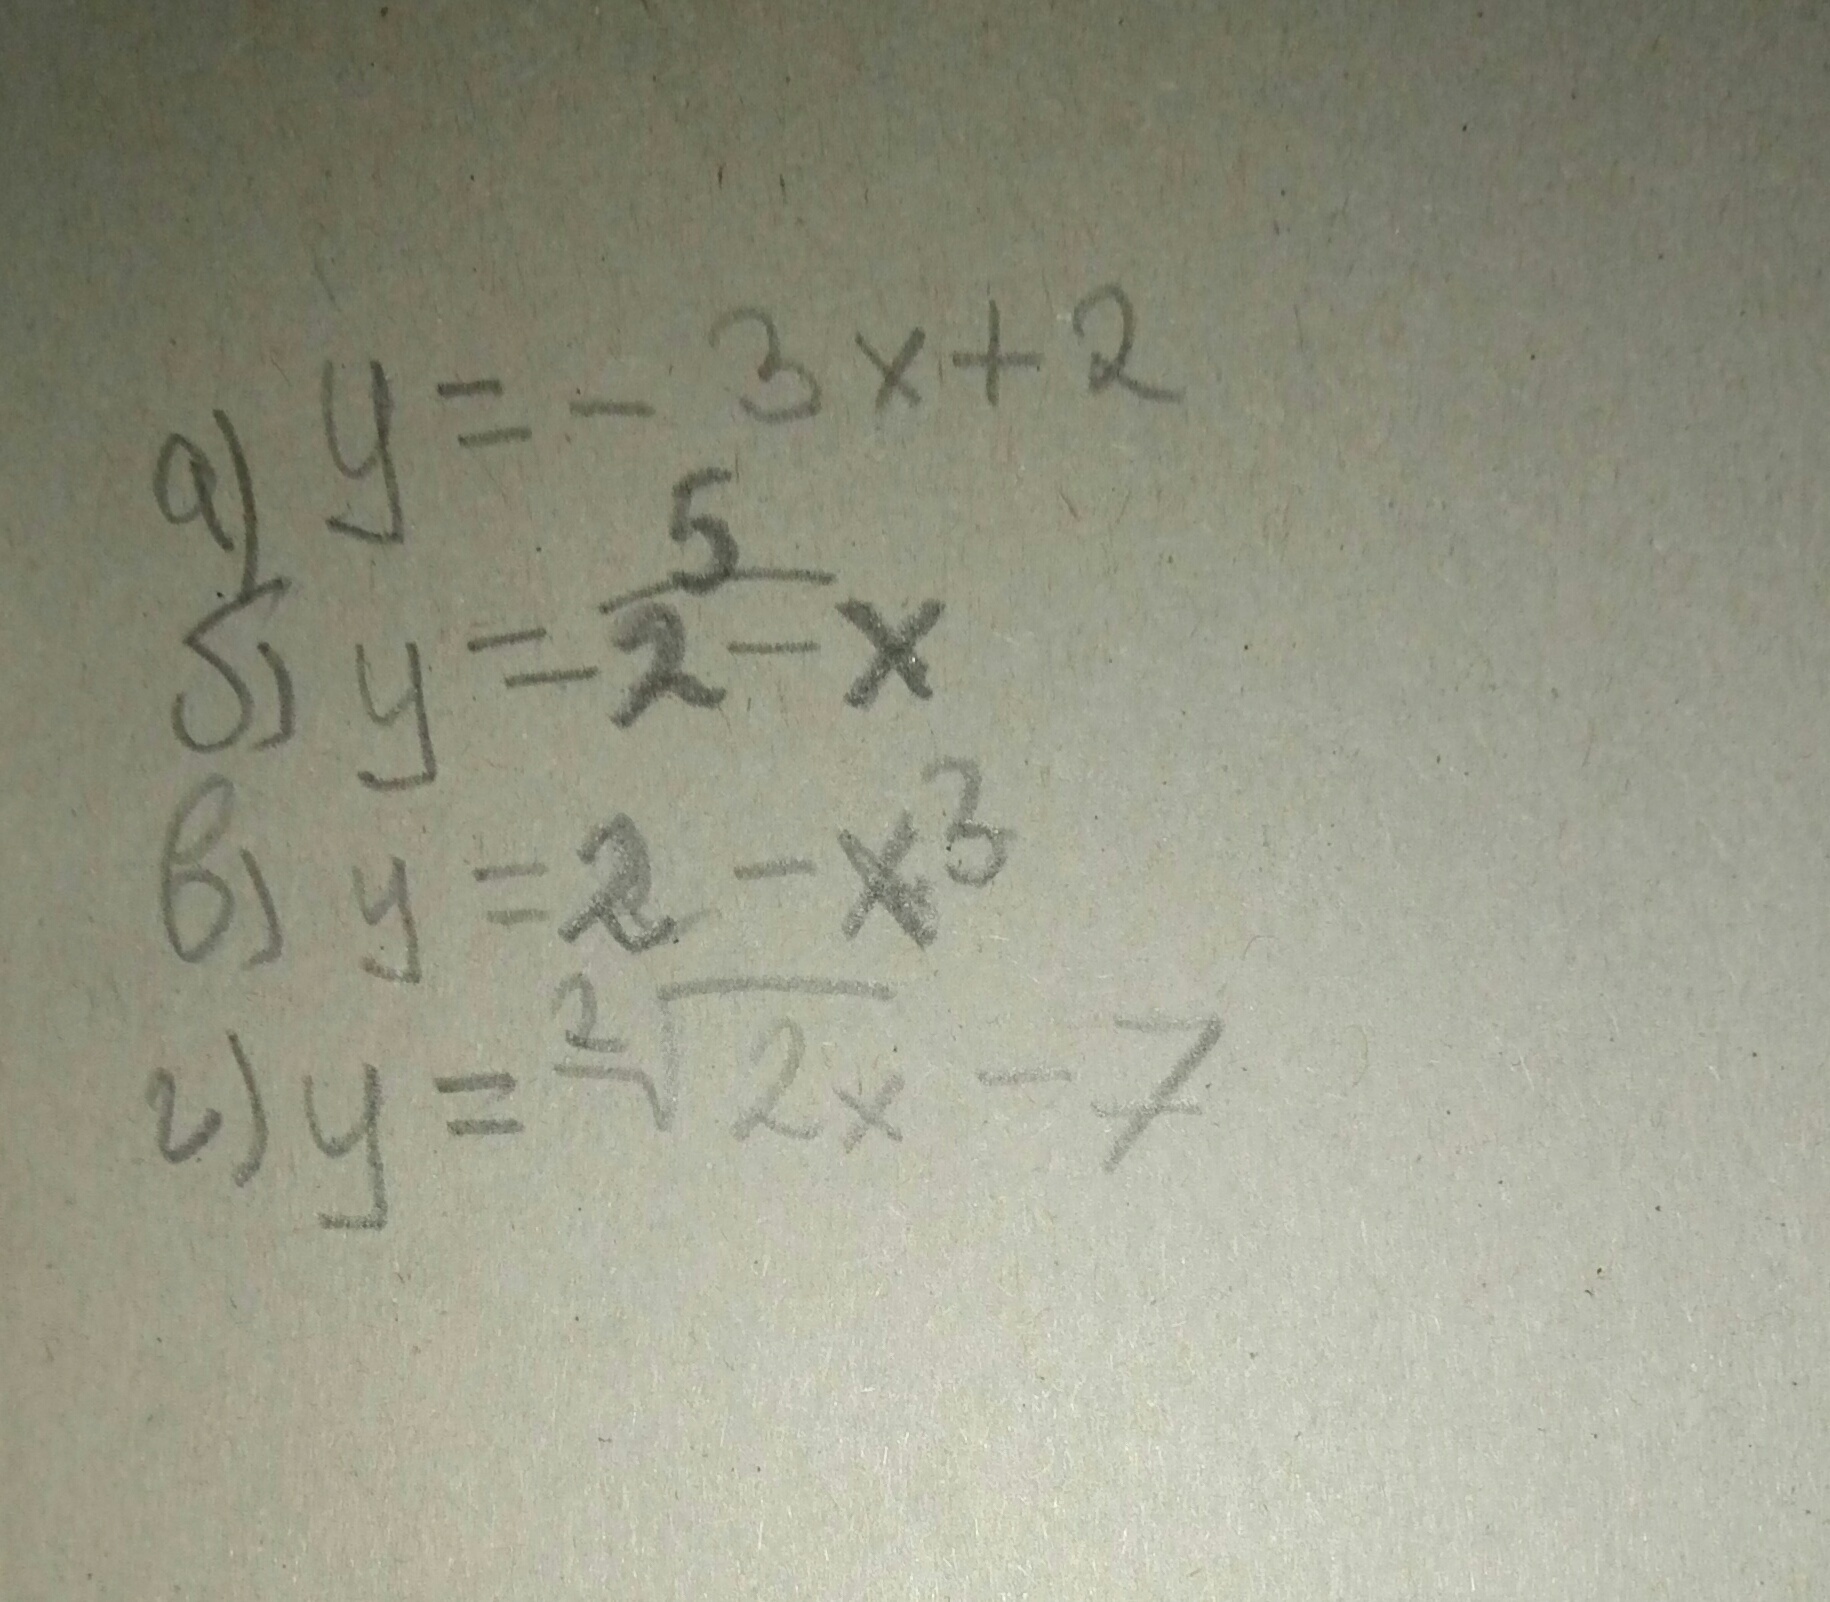 а) y = - 3x + 2
б) y = 5/(2 - x)
в) y = 2 - x³
г) y = ²√2x - 7